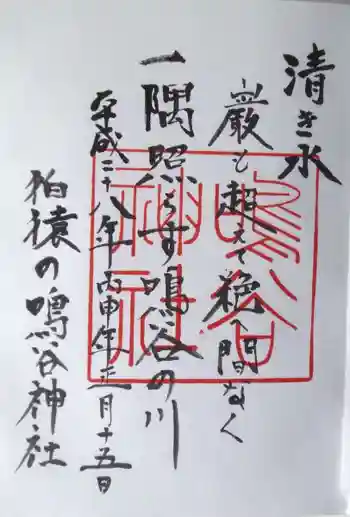 清き水
巌も超えて絶へ間なく
一隅照らす鳴谷の川
平成二十八年丙申年正月十五日
柏槙の鳴谷神社
鳴谷
神社